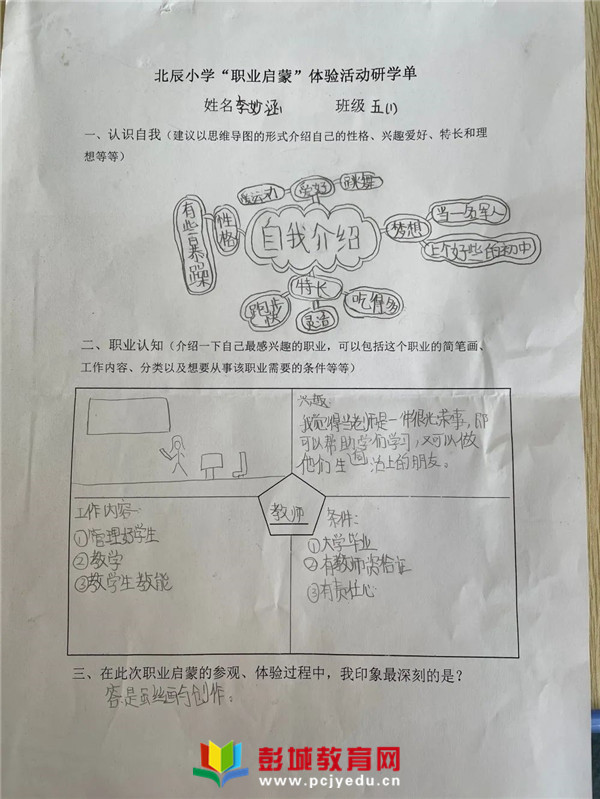 北辰小学“职业启蒙”体验活动研学单
姓名李妙涵 班级五(1)
一、认识自我（建议以思维导图的形式介绍自己的性格、兴趣爱好、特长和理
想等等）
爱好
跳舞
有些暴躁
性格
自我介绍
梦想
当一名军人
上个好些的初中
特长
跑步快
灵活
吃得多
二、职业认知（介绍一下自己最感兴趣的职业，可以包括这个职业的简笔画、
工作内容、分类以及想要从事该职业需要的条件等等）
兴趣:
我觉得当老师是一件很光荣事，即
可以帮助学们学习，又可以做
他们生活上的朋友。
教师
工作内容:
①管理好学生
②教学
③教学生教能
条件:
①大学毕业
②有教师资格证
③有责任心
三、在此次职业启蒙的参观、体验过程中，我印象最深刻的是？
画与创作。
彭城教育网
www.pcjyedu.cn